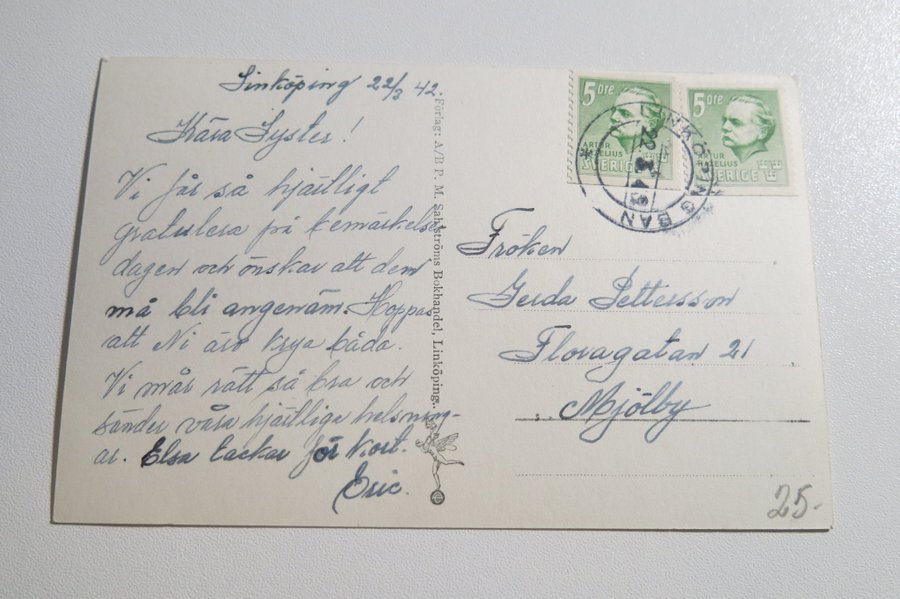 Linköping 22/3 42.
Kära Syster!
Vi får så hjärtligt
gratulera på bemärkelse
dagen och önskar att den
må bli angenäm. Hoppas
att Ni äro krya båda.
Vi mår rätt så bra och
sänder våra hjärtliga helsning-
ar. Elsa tackar för kort.
Eric.
Förlag: A/B P. M. Sahlströms Bokhandel, Linköping.
5 öre
ARTUR
HAZELIUS
SVERIGE
5 öre
ARTUR
HAZELIUS
SVERIGE
LINKÖPING BAN
22 3 42
Fröken
Gerda Pettersson
Floragatan 21
Mjölby
25-